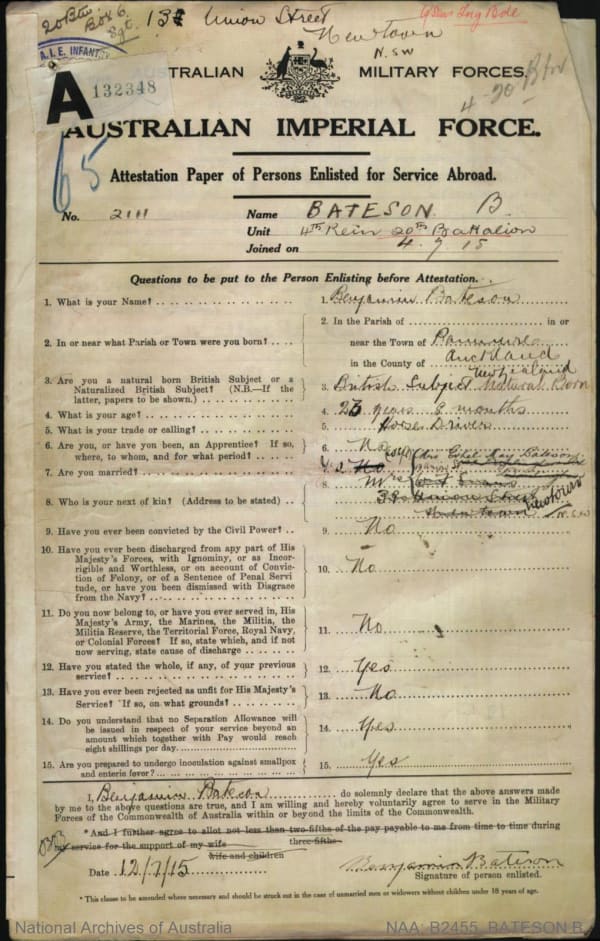 20 Btn Box 6. 13 Union Street
Sgt. Newtown
N.SW
A.I.E. INFANTRY
A 132348
AUSTRALIAN MILITARY FORCES.
AUSTRALIAN IMPERIAL FORCE.
65
Attestation Paper of Persons Enlisted for Service Abroad.
No. 2111 Name BATESON B.
Unit 4th Rein 20th Battalion
Joined on 4.7.15
Questions to be put to the Person Enlisting before Attestation.
1. What is your Name? 1. Benjamin Bateson
2. In or near what Parish or Town were you born? 2. In the Parish of in or
near the Town of
in the County of Auckland
New Zealand
3. Are you a natural born British Subject or a
Naturalized British Subject? (N.B.—If the
latter, papers to be shown.) 3. British Subject Natural Born
4. What is your age? 4. 23 years 8 months
5. What is your trade or calling? 5. Horse Driver
6. Are you, or have you been, an Apprentice? If so,
where, to whom, and for what period? 6. No
7. Are you married? 7. Yes No
8. Who is your next of kin? (Address to be stated) 8. Mrs
Union Street
Newtown N.S.W
9. Have you ever been convicted by the Civil Power? 9. No
10. Have you ever been discharged from any part of His
Majesty's Forces, with Ignominy, or as Incor-
rigible and Worthless, or on account of Convic-
tion of Felony, or of a Sentence of Penal Servi-
tude, or have you been dismissed with Disgrace
from the Navy? 10. No
11. Do you now belong to, or have you ever served in, His
Majesty's Army, the Marines, the Militia, the
Militia Reserve, the Territorial Force, Royal Navy,
or Colonial Forces? If so, state which, and if not
now serving, state cause of discharge 11. No
12. Have you stated the whole, if any, of your previous
service? 12. Yes
13. Have you ever been rejected as unfit for His Majesty's
Service? If so, on what grounds? 13. No
14. Do you understand that no Separation Allowance will
be issued in respect of your service beyond an
amount which together with Pay would reach
eight shillings per day. 14. Yes
15. Are you prepared to undergo inoculation against smallpox
and enteric fever? 15. Yes
I, Benjamin Bateson do solemnly declare that the above answers made
by me to the above questions are true, and I am willing and hereby voluntarily agree to serve in the Military
Forces of the Commonwealth of Australia within or beyond the limits of the Commonwealth.
*And I further agree to allot not less than two-fifths of the pay payable to me from time to time during
three-fifths
my service for the support of my wife
wife and children
Date 12/7/15 Benjamin Bateson
Signature of person enlisted.
*This clause to be amended where necessary and should be struck out in the case of unmarried men or widowers without children under 18 years of age.
National Archives of Australia NAA: B2455, BATESON B